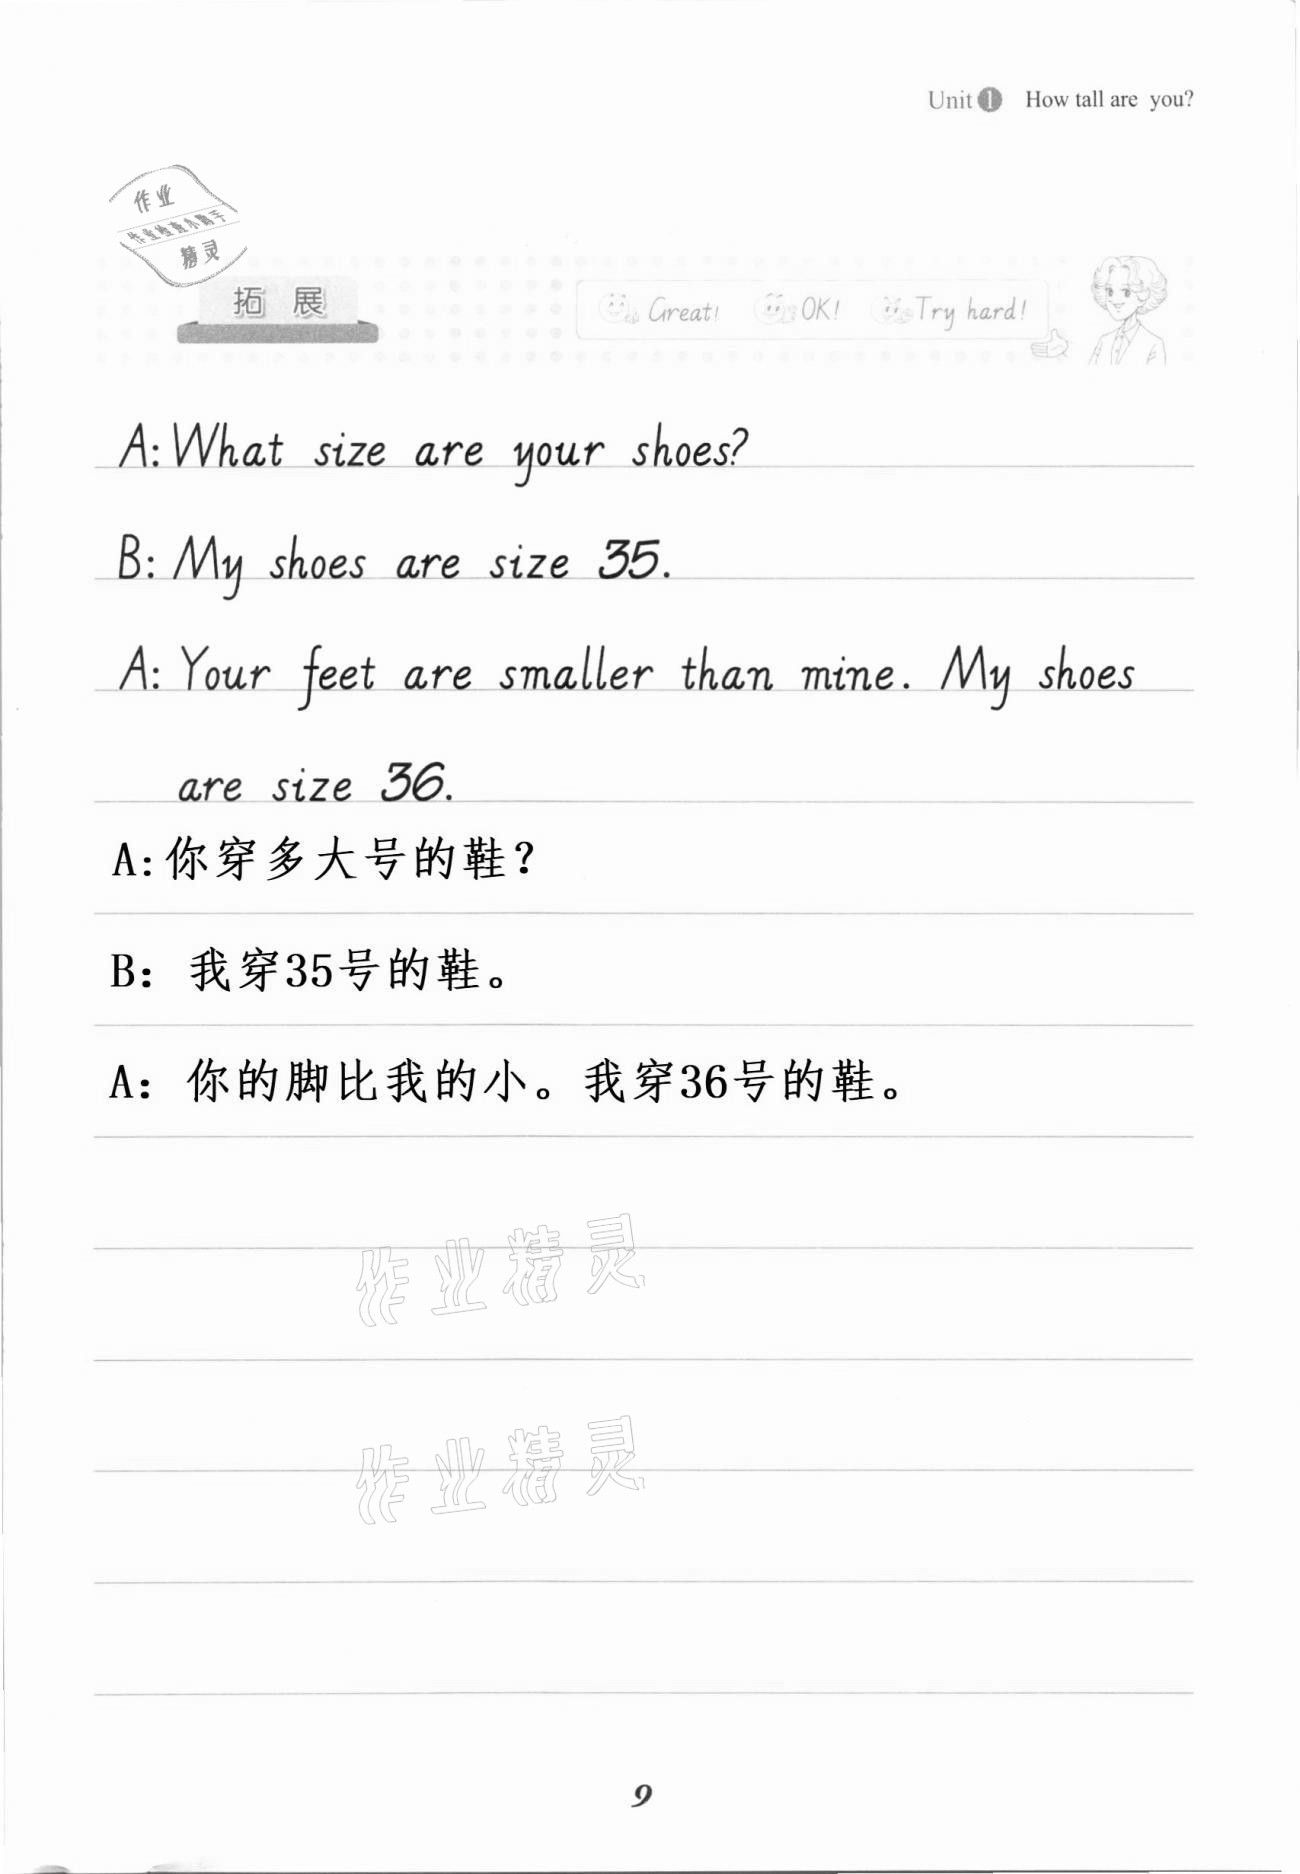 Unit 1 How tall are you?
作业
作业检查小助手
精灵
拓展
Great! OK! Try hard!
A: What size are your shoes?
B: My shoes are size 35.
A: Your feet are smaller than mine. My shoes
are size 36.
A:你穿多大号的鞋？
B：我穿35号的鞋。
A：你的脚比我的小。我穿36号的鞋。
作业精灵
作业精灵
9